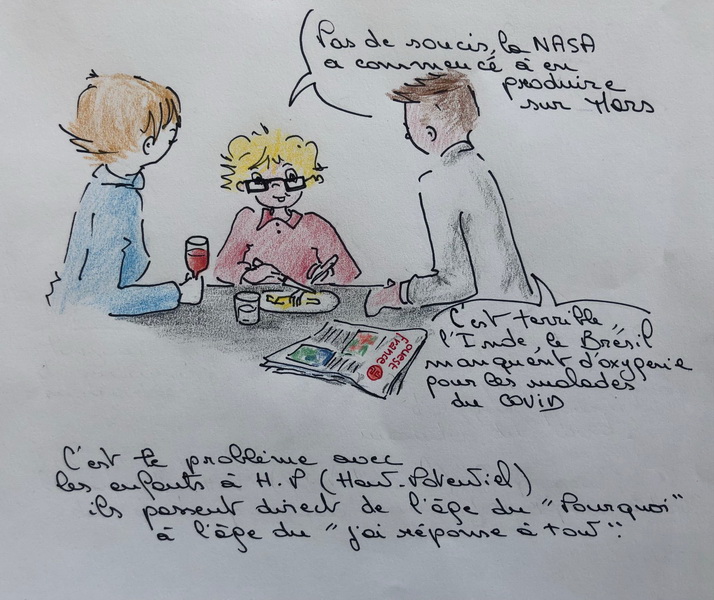 Pas de soucis, la NASA
a commencé à en
produire
sur Mars
C'est terrible,
l'Inde, le Brésil
manquent d'oxygène
pour les malades
du COVID
ouest
france
C'est le problème avec
les enfants à H.P (Haut-Potentiel)
ils passent direct de l'âge du "Pourquoi"
à l'âge du "j'ai réponse à tout".